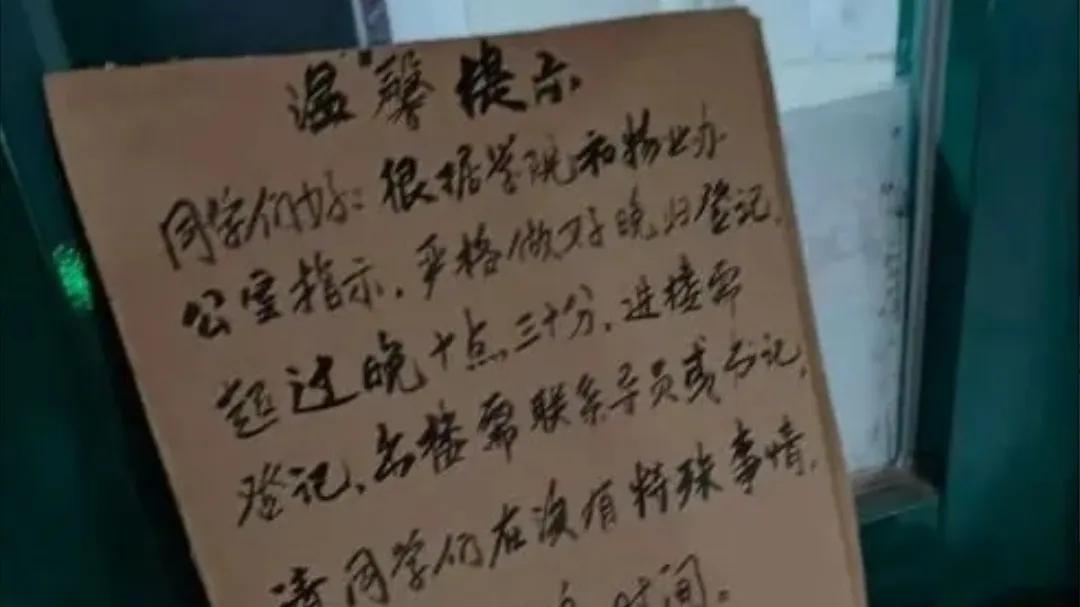 温馨提示
同学们好：根据学院和物业办
公室指示，严格做好晚归登记，
超过晚十点三十分，进楼需
登记，出楼需联系导员或书记，
请同学们在没有特殊事情，
时间。